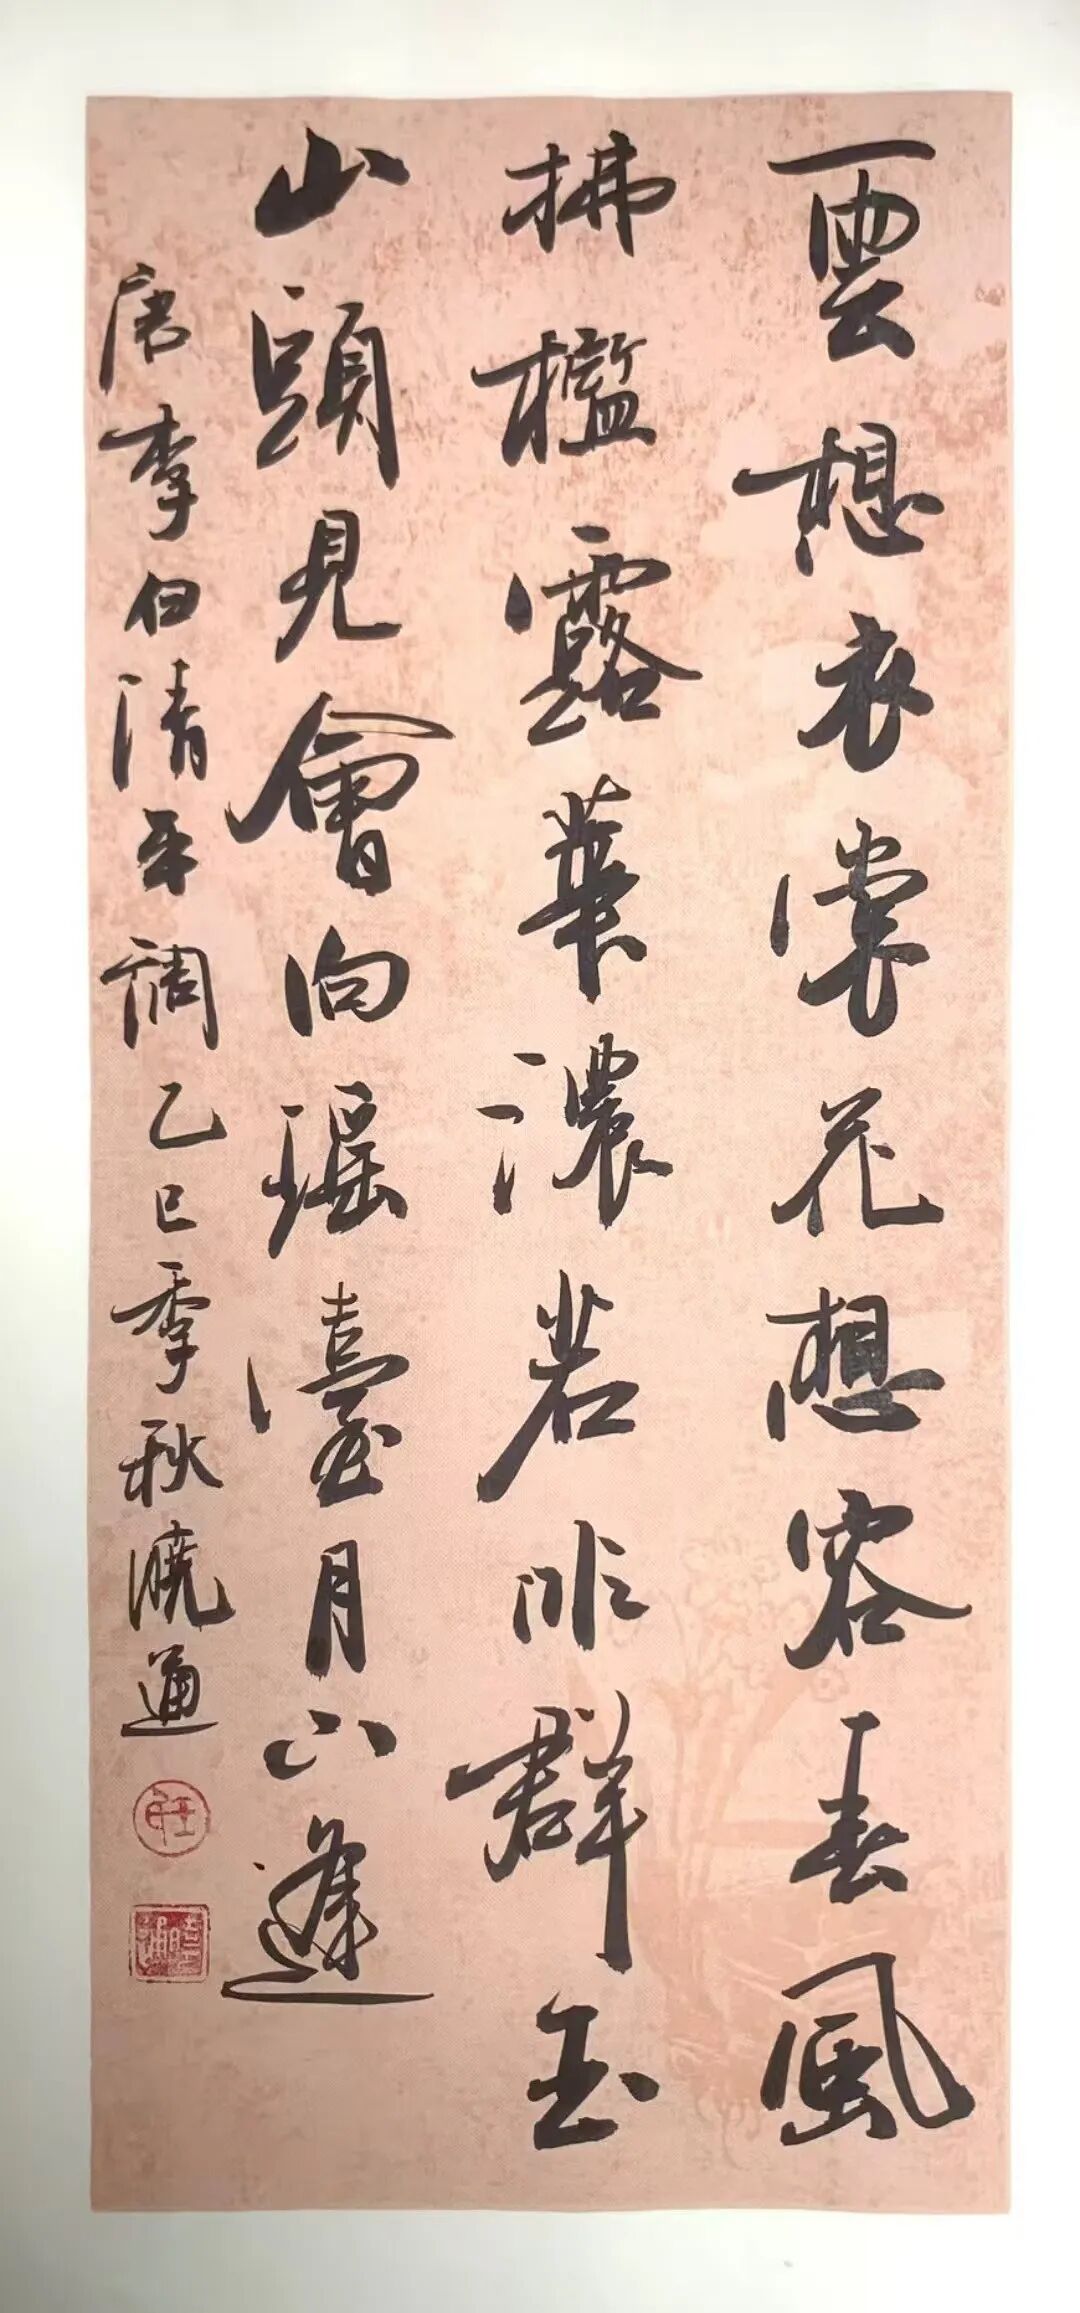 雲想衣裳花想容春風
拂檻露華濃若非群玉
山頭見會向瑶臺月下逢
唐李白清平調乙巳季秋曉通